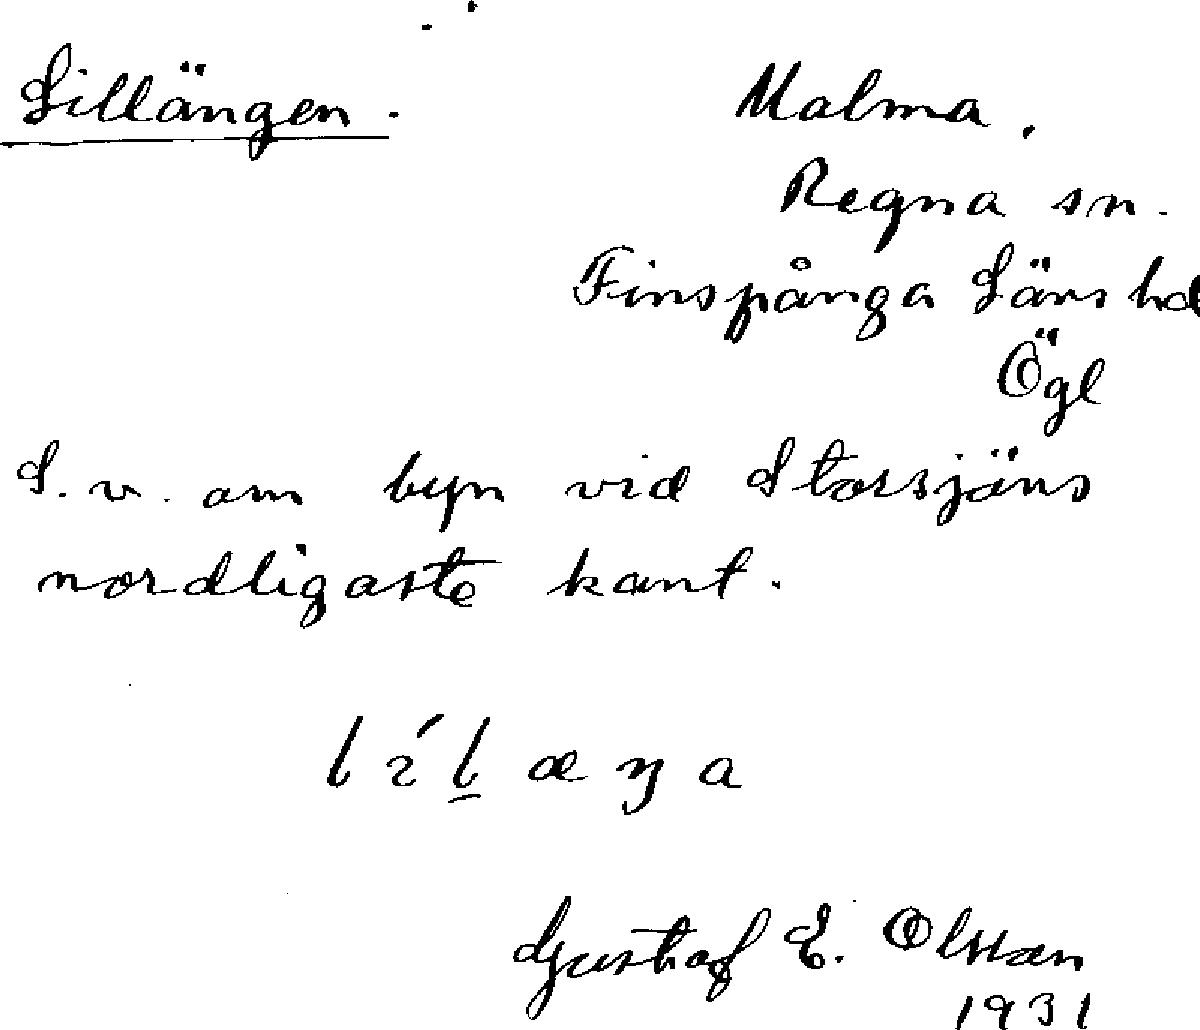 Lillängen.
Malma.
Regna sn.
Finspånga Läns hd
Ögl
S.v. om byn vid Storsjöns
nordligaste kant.
lílæŋa
Gustaf E. Olsson
1931